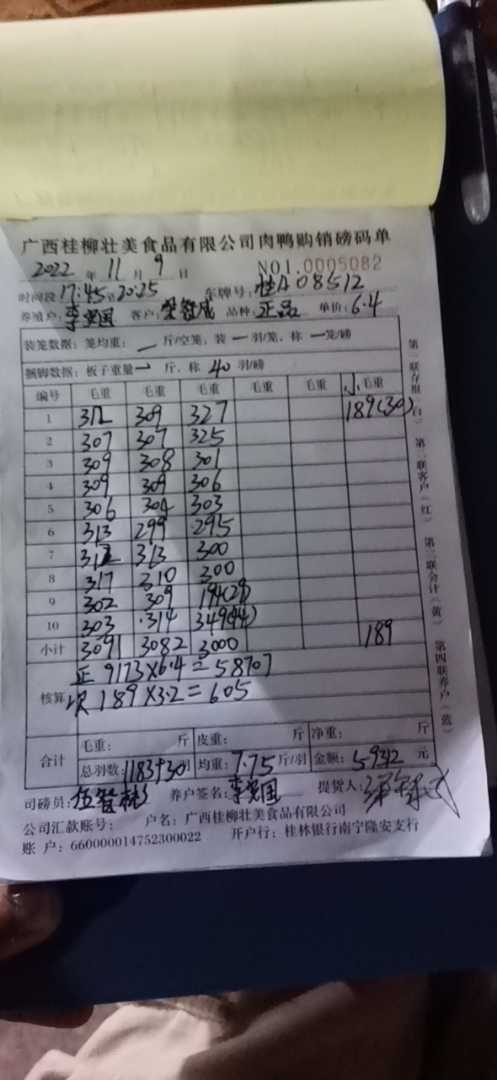 广西桂柳壮美食品有限公司肉鸭购销磅码单
2022 年 11 月 9 日 NO1.0005082
时间段 17:45至20:25 车牌号: 桂A08512
养殖户: 李 国 客户: 品种: 正品 单价: 6.4
装笼数据: 笼均重: — 斤/空笼, 装 — 羽/笼, 称 — 笼/磅
捆脚数据: 板子重量 — 斤, 称 40 羽/磅
编号 毛重 毛重 毛重 毛重 毛重 小 毛重
1 312 309 327 189(30)
2 307 307 325
3 309 308 301
4 309 309 306
5 306 304 303
6 313 299 295
7 312 313 300
8 317 310 300
9 302 309 194(29)
10 303 314 349(44)
小计 3091 3082 3000 189
核算 正 9173×6.4=58707
次 189×3.2=605
合计 毛重: 斤 皮重: 斤 净重: 斤
总羽数: 1183+30羽 均重: 7.75 斤/羽 金额: 59312 元
司磅员: 伍智彬 养户签名: 李 国 提货人:
公司汇款账号: 户名: 广西桂柳壮美食品有限公司
账 户: 660000014752300022 开户行: 桂林银行南宁隆安支行
第一联存根(白) 第二联客户(红) 第三联会计(黄) 第四联养户(蓝)